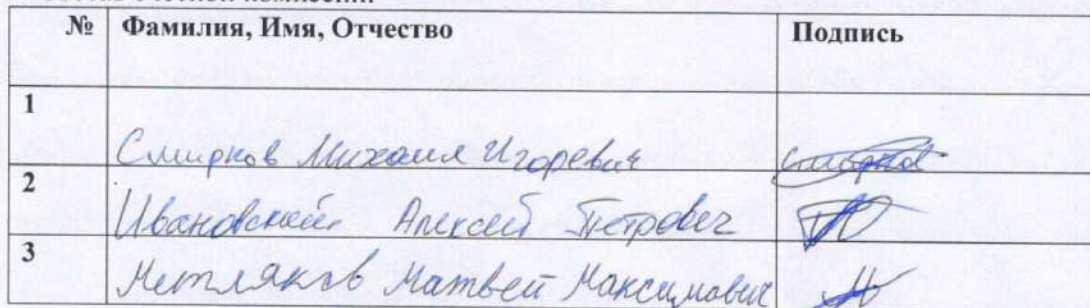 № Фамилия, Имя, Отчество Подпись
1
Смирнов Михаил Игоревич
2
Ивановский Алексей Петрович
3
Метляков Матвей Максимович